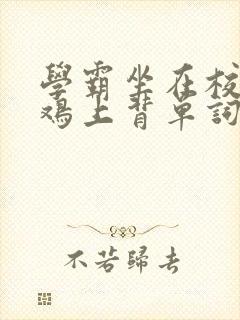 學霸坐在校
鸡上背單詞
不若歸去